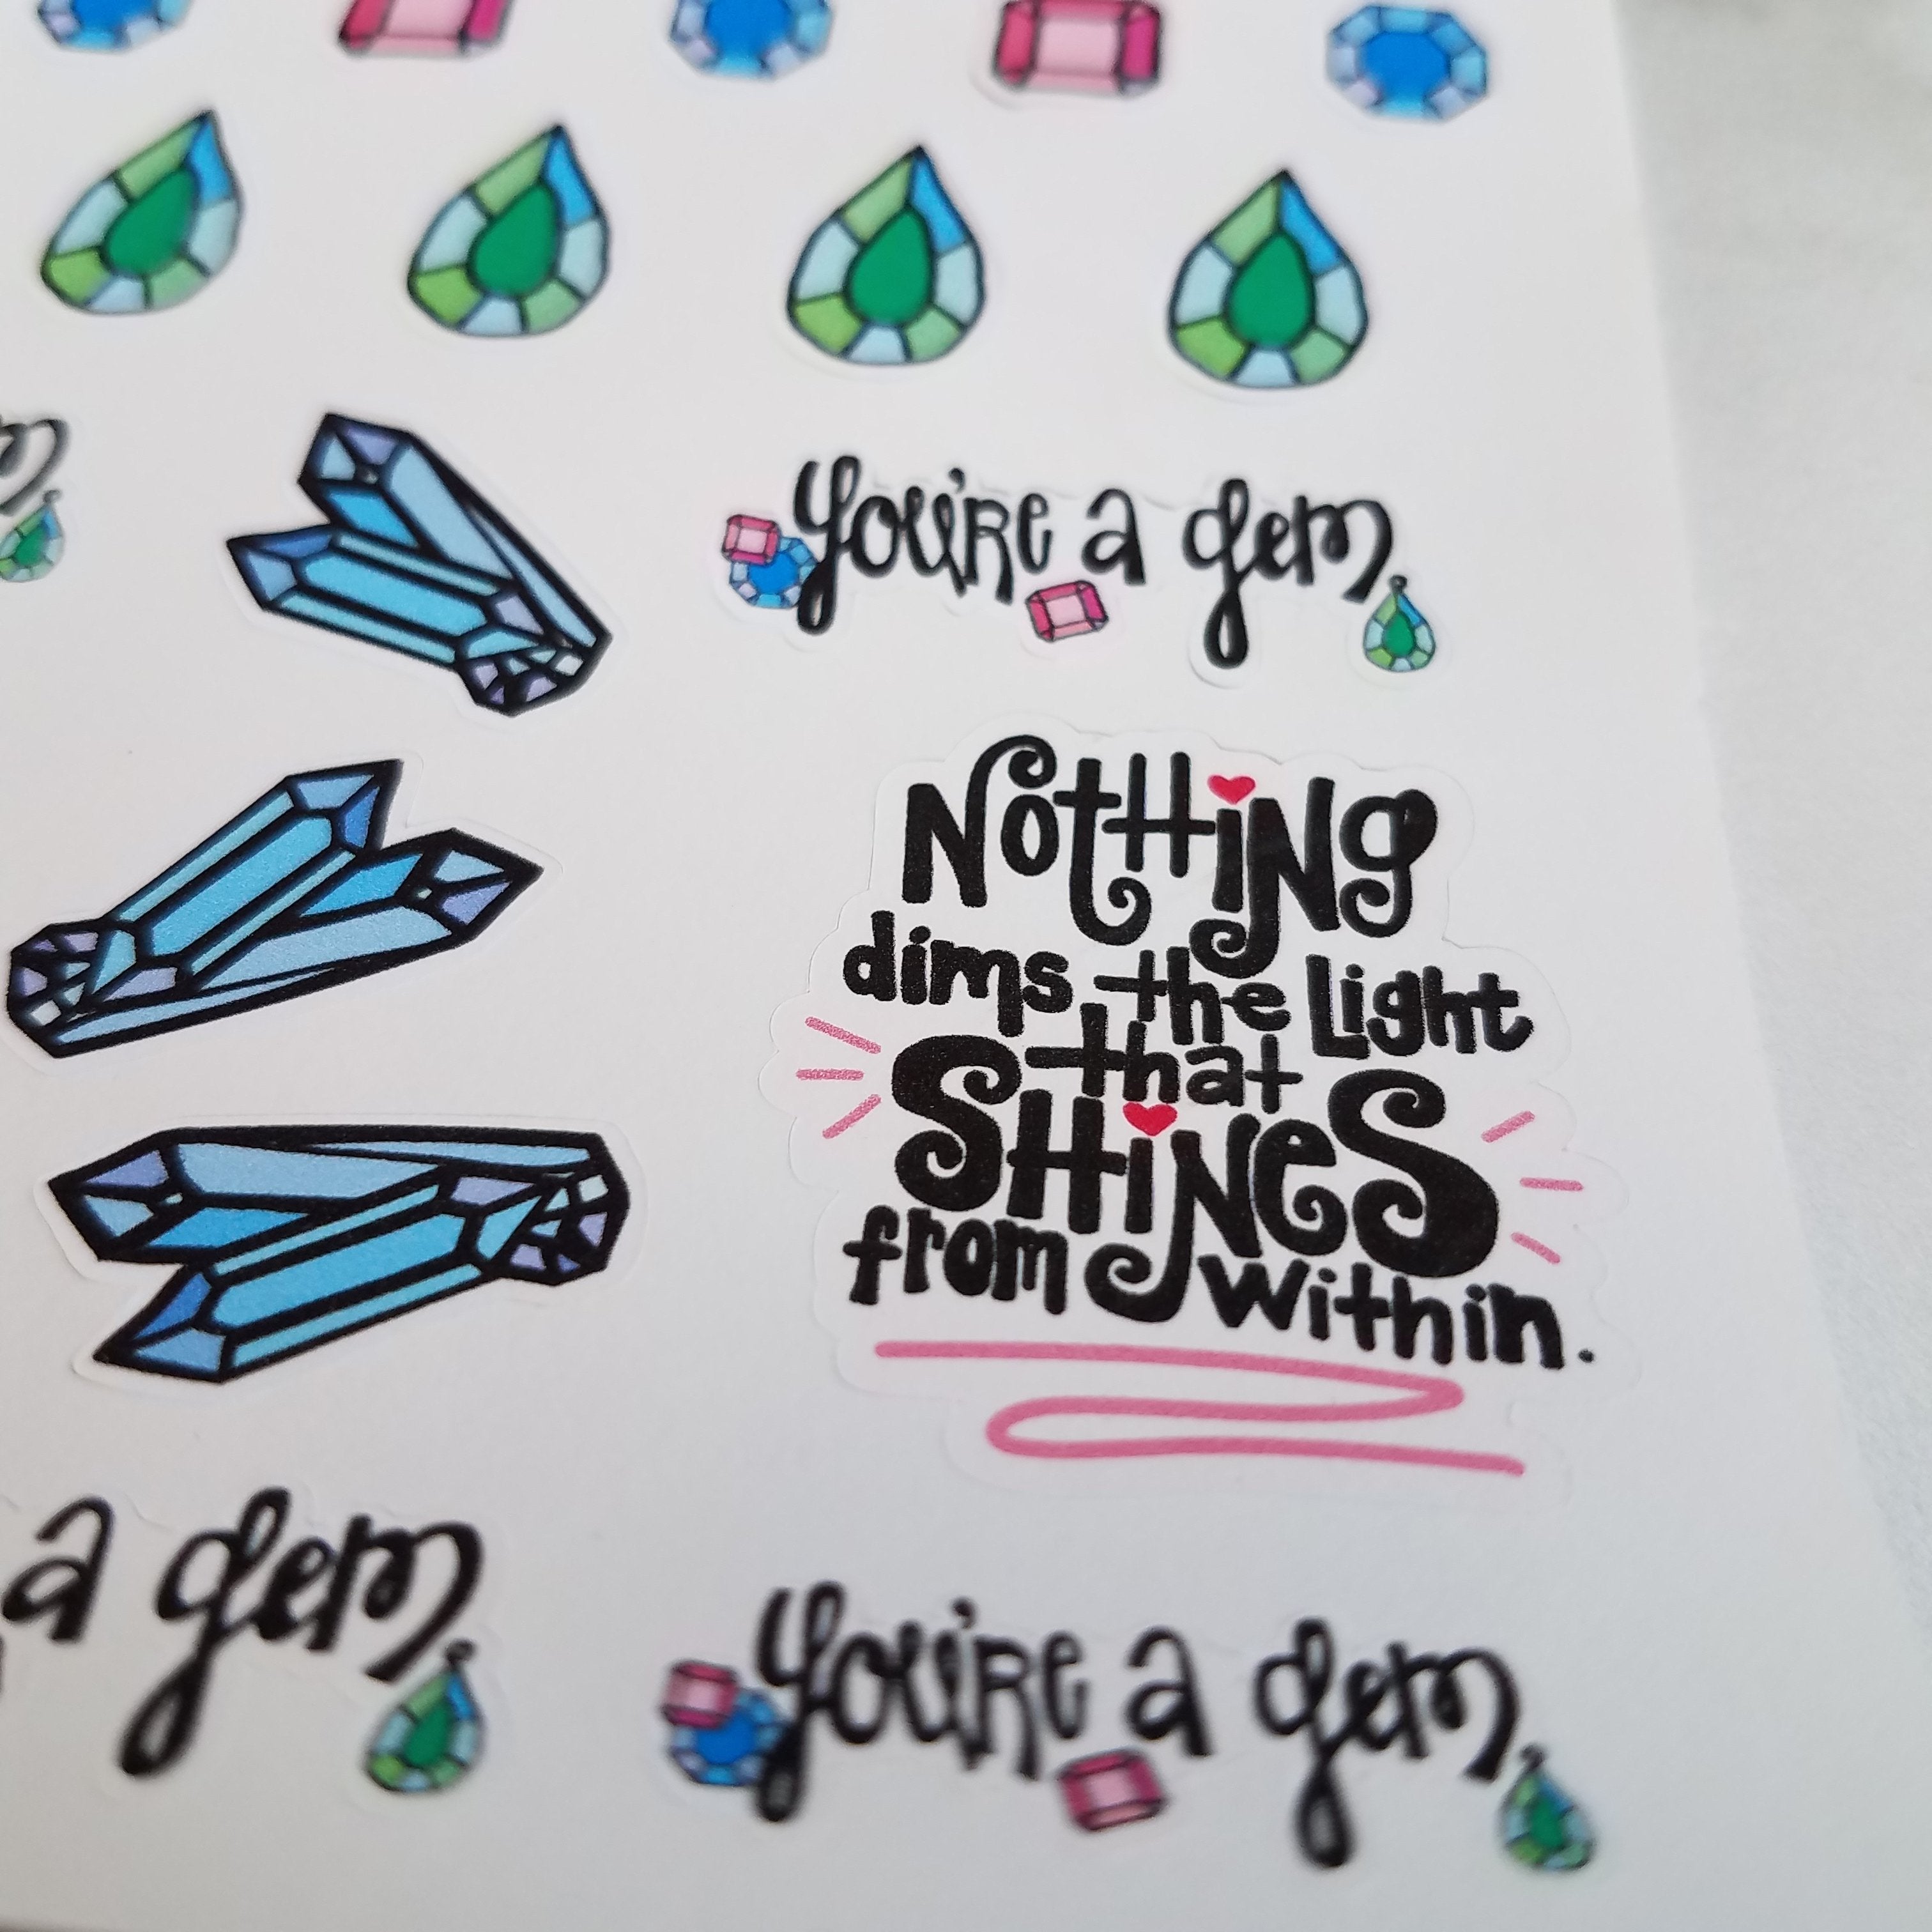 m
You're a gem
Nothing
dims the Light
that
SHiNeS
from within.
a gem
You're a gem